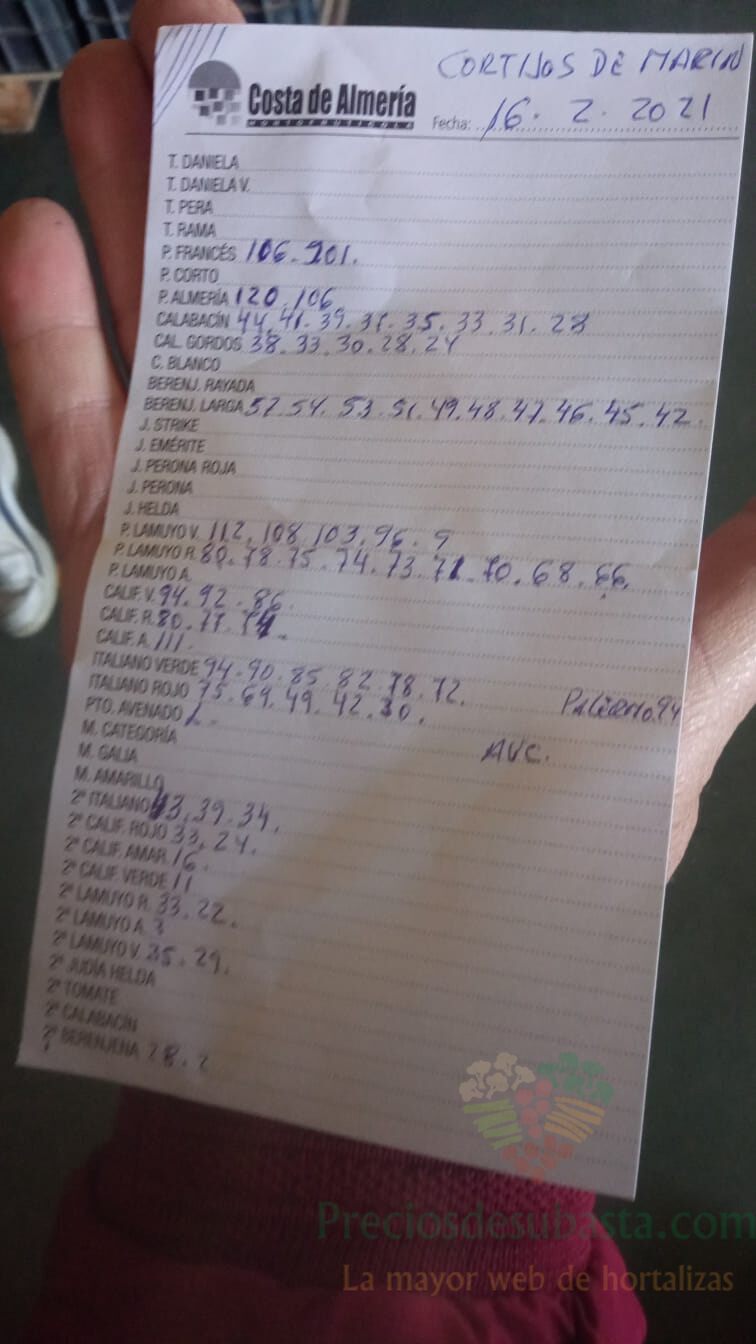 CORTIJOS DE MARIN
Costa de Almería
HORTOFRUTICOLA
Fecha: 16. 2. 2021
T. DANIELA
T. DANIELA V.
T. PERA
T. RAMA
P. FRANCÉS 106. 201.
P. CORTO
P. ALMERÍA 120. 106
CALABACÍN 44. 41. 39. 37. 35. 33. 31. 28
CAL. GORDOS 38. 33. 30. 28. 24
C. BLANCO
BERENJ. RAYADA
BERENJ. LARGA 57. 54. 53. 51. 49. 48. 47. 46. 45. 42.
J. STRIKE
J. EMÉRITE
J. PERONA ROJA
J. PERONA
J. HELDA
P. LAMUYO V. 112. 108. 103. 96. 9
P. LAMUYO R. 80. 78. 75. 74. 73. 71. 70. 68. 66.
P. LAMUYO A.
CALIF. V. 94. 92. 86.
CALIF. R. 80. 77. 74.
CALIF. A. 111.
ITALIANO VERDE 94. 90. 85. 82. 78. 72.
ITALIANO ROJO 75. 69. 49. 42. 30. PALERMO. 94
PTO. AVENADO
M. CATEGORÍA AVC.
M. GALIA
M. AMARILLO
2ª ITALIANO 43. 39. 34.
2ª CALIF. ROJO 33. 24.
2ª CALIF. AMAR. 16.
2ª CALIF. VERDE 11
2ª LAMUYO R. 33. 22.
2ª LAMUYO A. 3
2ª LAMUYO V. 35. 29.
2ª JUDÍA HELDA
2ª TOMATE
2ª CALABACÍN
2ª BERENJENA 28. 2
Preciosdesubasta.com
La mayor web de hortalizas